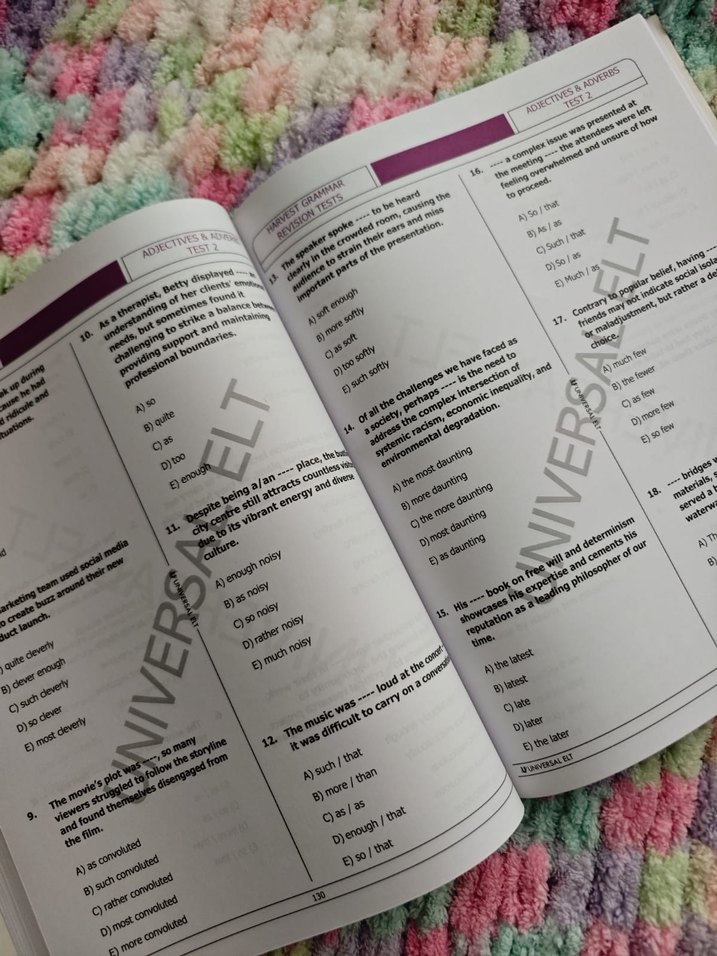 ADJECTIVES & ADVERBS
TEST 2
up during
cause he had
ridicule and
marketing team used social media
create buzz around their new
launch.
quite cleverly
B) clever enough
C) such cleverly
D) so clever
E) most cleverly
9. The movie's plot was ----, so many
viewers struggled to follow the storyline
and found themselves disengaged from
the film.
A) as convoluted
B) such convoluted
C) rather convoluted
D) most convoluted
E) more convoluted
10. As a therapist, Betty displayed ----
understanding of her clients'
needs, but sometimes found it
challenging to strike a balance
providing support and maintaining
professional boundaries.
A) so
B) quite
C) as
D) too
E) enough
11. Despite being a/an ---- place, the
city centre still attracts countless
due to its vibrant energy and diverse
culture.
A) enough noisy
B) as noisy
C) so noisy
D) rather noisy
E) much noisy
12. The music was ---- loud at the concert
it was difficult to carry on a
A) such / that
B) more / than
C) as / as
D) enough / that
E) so / that
UNIVERSAL ELT
UNIVERSAL ELT
130
HARVEST GRAMMAR
REVISION TESTS
ADJECTIVES & ADVERBS
TEST 2
13. The speaker spoke ---- to be heard
clearly in the crowded room, causing the
audience to strain their ears and miss
important parts of the presentation.
A) soft enough
B) more softly
C) as soft
D) too softly
E) such softly
14. Of all the challenges we have faced as
a society, perhaps ---- is the need to
address the complex intersection of
systemic racism, economic inequality, and
environmental degradation.
A) the most daunting
B) more daunting
C) the more daunting
D) most daunting
E) as daunting
15. His ---- book on free will and determinism
showcases his expertise and cements his
reputation as a leading philosopher of our
time.
A) the latest
B) latest
C) late
D) later
E) the later
16. ---- a complex issue was presented at
the meeting ---- the attendees were left
feeling overwhelmed and unsure of how
to proceed.
A) So / that
B) As / as
C) Such / that
D) So / as
E) Much / as
17. Contrary to popular belief, having ----
friends may not indicate social
or maladjustment, but rather a
choice.
A) much few
B) the fewer
C) as few
D) more few
E) so few
18. ---- bridges
materials,
served a
A)
B)
UNIVERSAL ELT
UNIVERSAL ELT
UNIVERSAL ELT